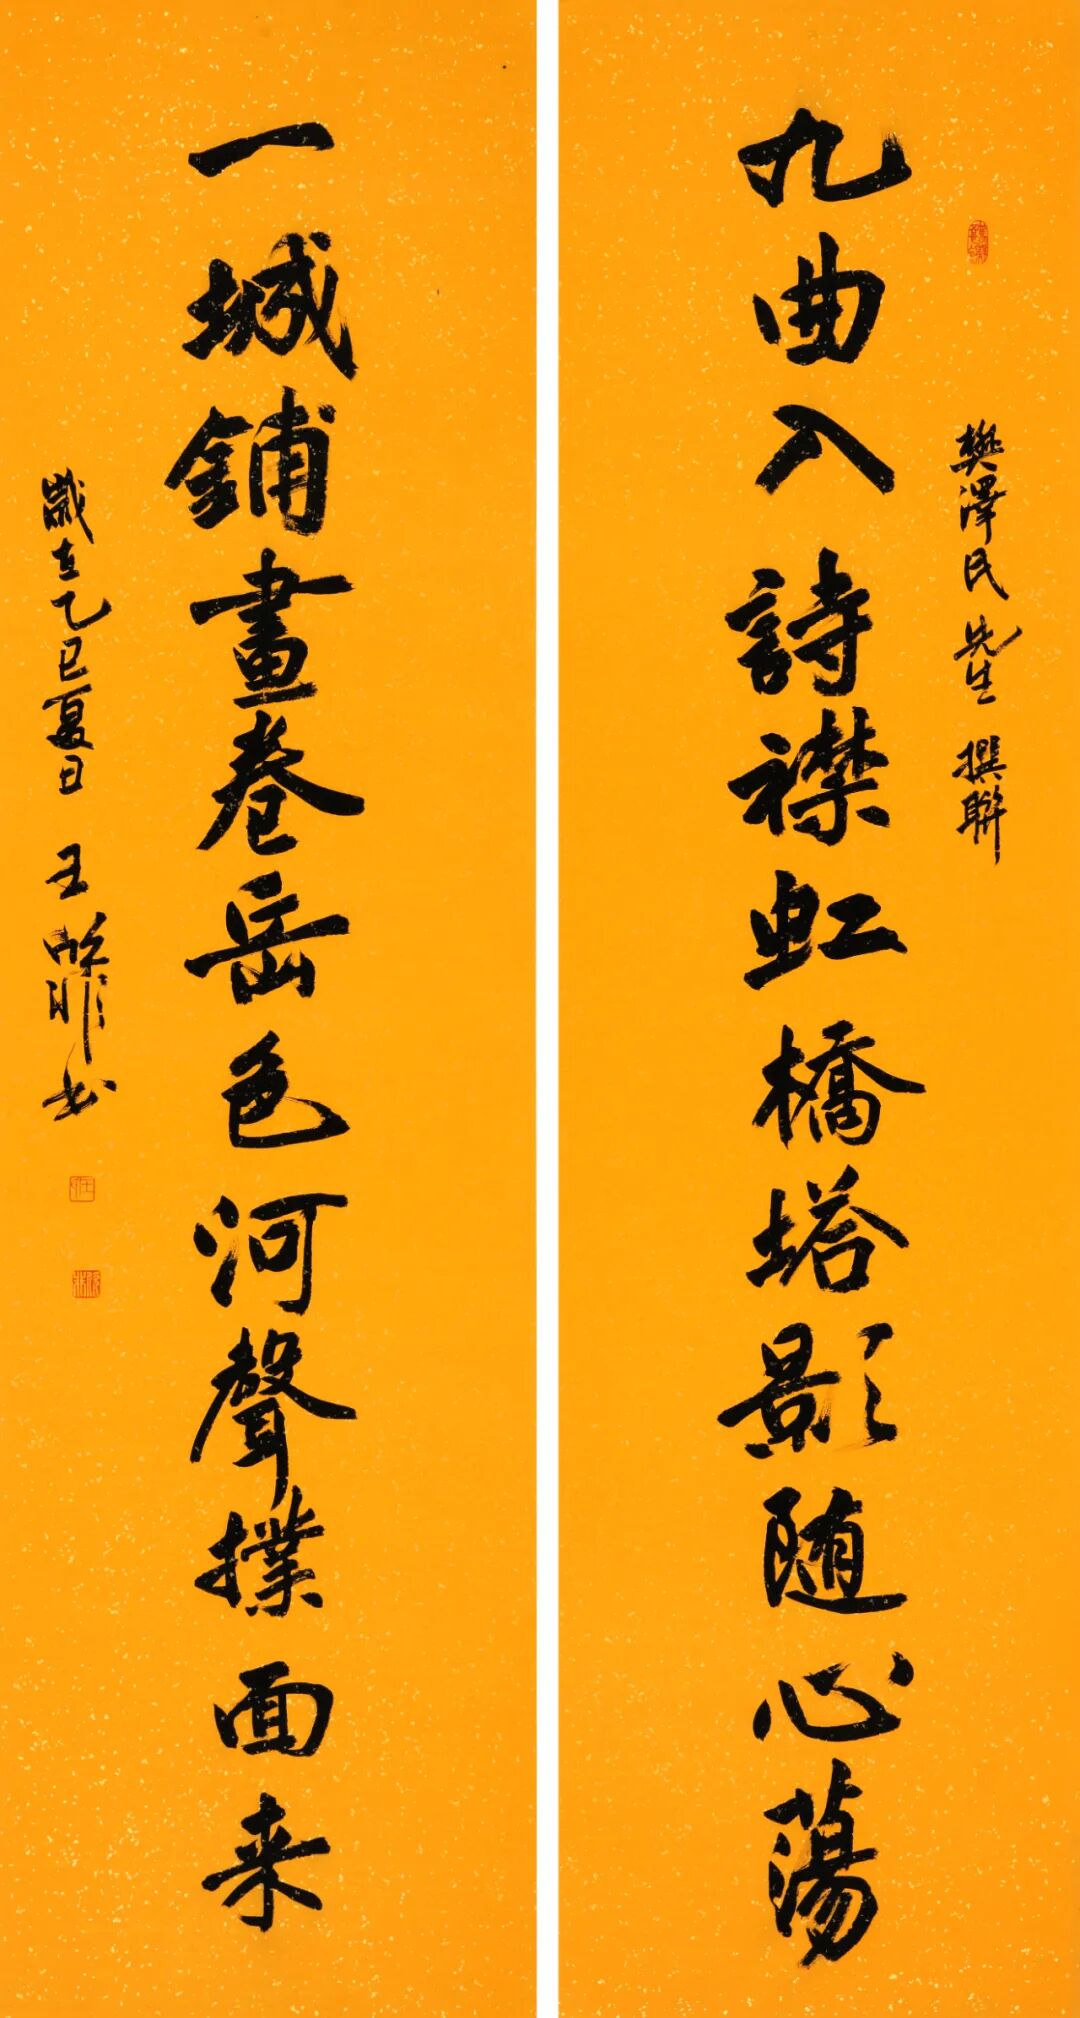 九曲入詩襟虹橋塔影随心蕩
樊澤民先生撰聯
一城鋪畫卷岳色河聲撲面来
歲在乙巳夏日 王 书